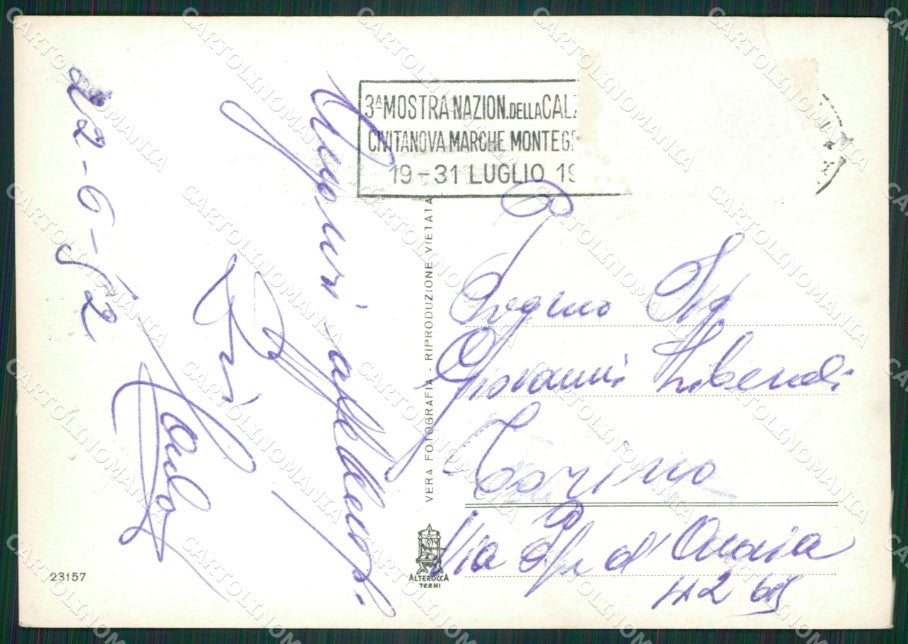 22-6-62
Auguri affettuosi
Zii
Carlo
3ª MOSTRA NAZION. DELLA CAL
CIVITANOVA MARCHE MONTEG
19-31 LUGLIO 19
VERA FOTOGRAFIA - RIPRODUZIONE VIETATA
Sig
Giovanni Liberali
Torino
Via d'
42 bis
ALTEROCCA
TERNI
23157
CARTOLINOMANIA